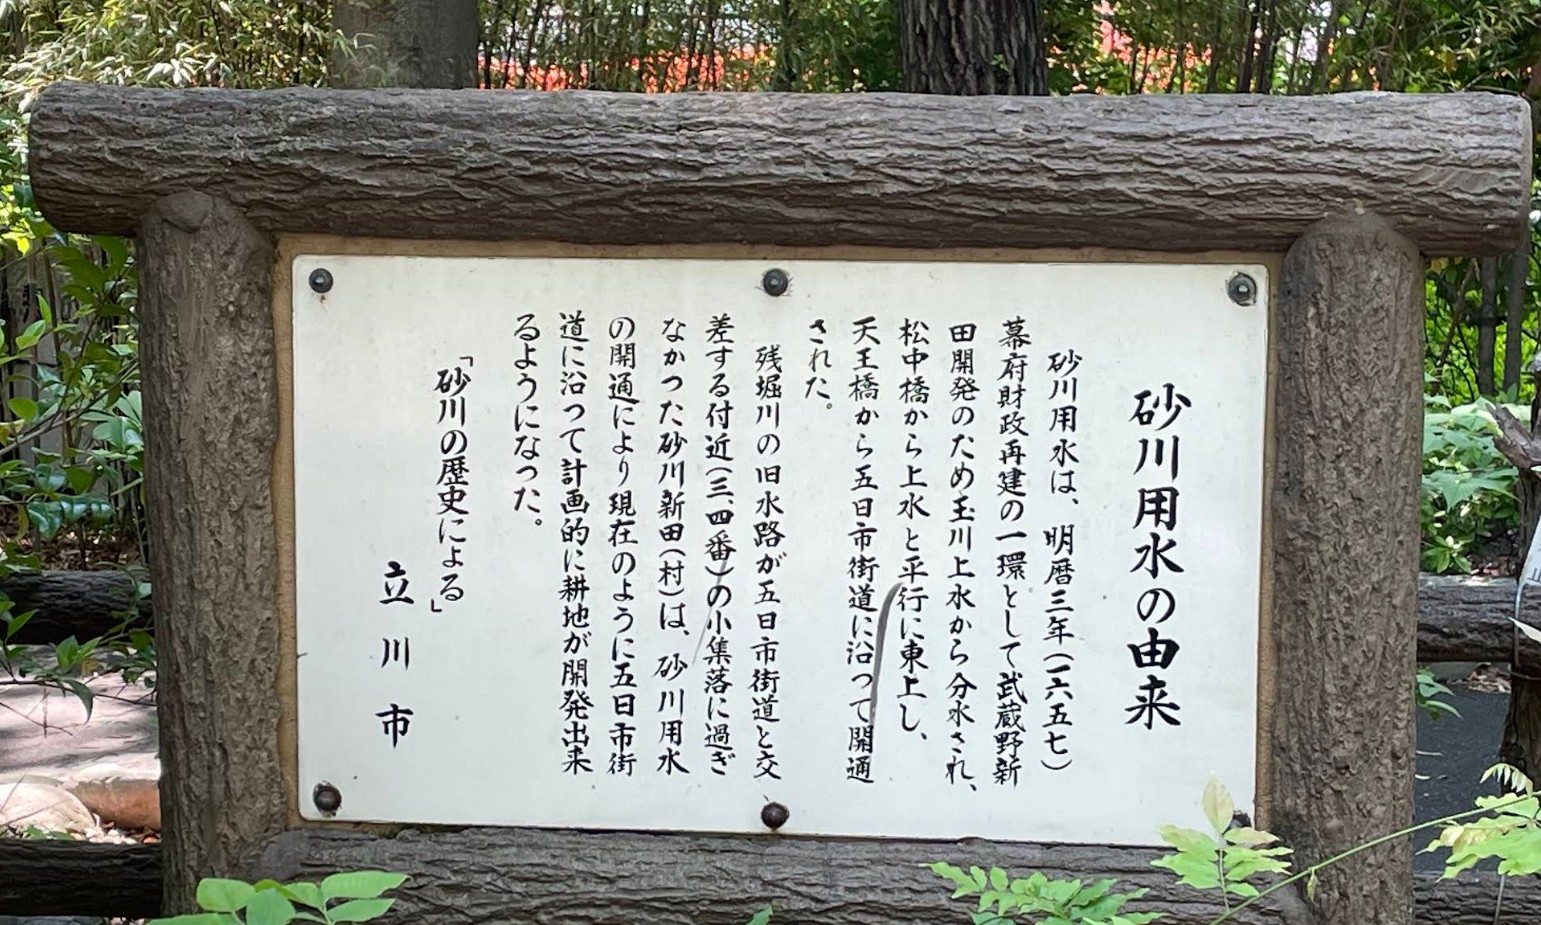 砂川用水の由来
砂川用水は、明暦三年(一六五七)
幕府財政再建の一環として武蔵野新
田開発のため玉川上水から分水され、
松中橋から上水と平行に東上し、
天王橋から五日市街道に沿つて開通
された。
残堀川の旧水路が五日市街道と交
差する付近(三、四番)の小集落に過ぎ
なかつた砂川新田(村)は、砂川用水
の開通により現在のように五日市街
道に沿つて計画的に耕地が開発出来
るようになつた。
「砂川の歴史による」
立川市